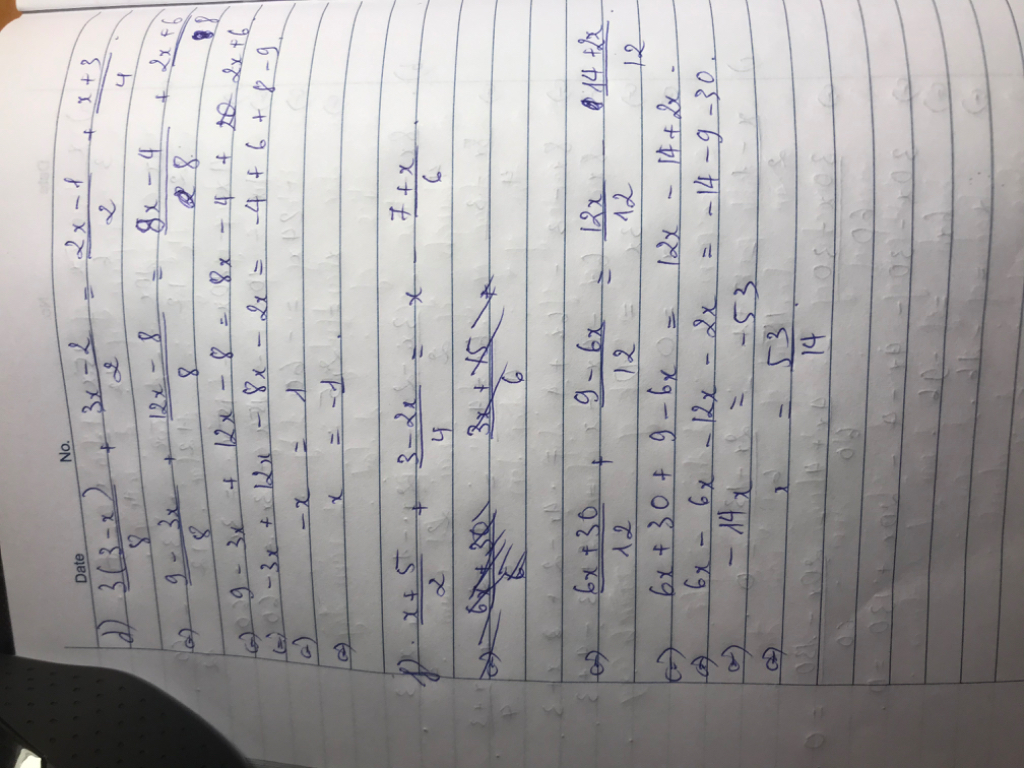 No.
Date
d) 3(3-x)/8 + 3x-2/2 = 2x-1/2 + x+3/4
(=) 9-3x/8 + 12x-8/8 = 8x-4/8 + 2x+6/8
(=) 9-3x + 12x-8 = 8x-4 + 2x+6
(=) -3x + 12x - 8x - 2x = -4 + 6 + 8 - 9
(=) -x = 1
(=) x = -1
f) x+5/2 + 3-2x/4 = x - 7+x/6
(=) 6x+30/6 3x+15/6
(=) 6x+30/12 + 9-6x/12 = 12x/12 14+2x/12
(=) 6x+30 + 9-6x = 12x - 14+2x
(=) 6x - 6x - 12x - 2x = -14 - 9 - 30.
(=) -14x = -53
(=) x = 53/14